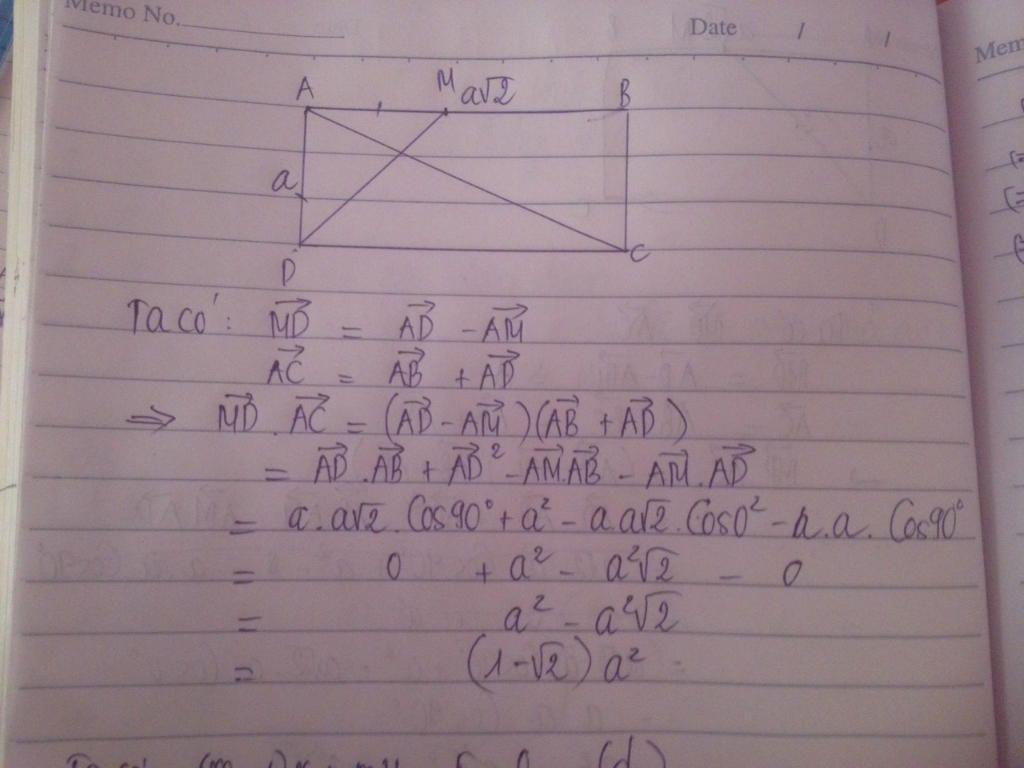 Memo No.
Date / /
A M a√2 B
a
D C
Ta có: $\overrightarrow{MD} = \overrightarrow{AD} - \overrightarrow{AM}$
$\overrightarrow{AC} = \overrightarrow{AB} + \overrightarrow{AD}$
⇒ $\overrightarrow{MD} . \overrightarrow{AC} = (\overrightarrow{AD} - \overrightarrow{AM})(\overrightarrow{AB} + \overrightarrow{AD})$
$= \overrightarrow{AD} . \overrightarrow{AB} + \overrightarrow{AD}^2 - \overrightarrow{AM} . \overrightarrow{AB} - \overrightarrow{AM} . \overrightarrow{AD}$
= a.a√2.Cos90° + a² - a.a√2.Cos0° - a.a.Cos90°
= 0 + a² - a²√2 - 0
= a² - a²√2
= (1-√2) a²
Mem